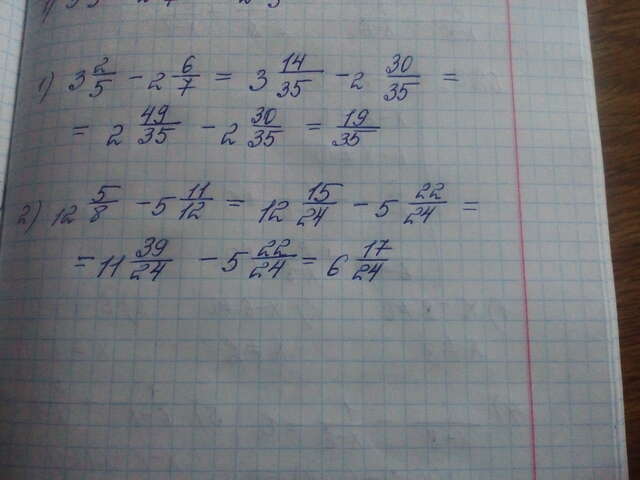 1) 3 2/5 - 2 6/7 = 3 14/35 - 2 30/35 =
= 2 49/35 - 2 30/35 = 19/35
2) 12 5/8 - 5 11/12 = 12 15/24 - 5 22/24 =
= 11 39/24 - 5 22/24 = 6 17/24